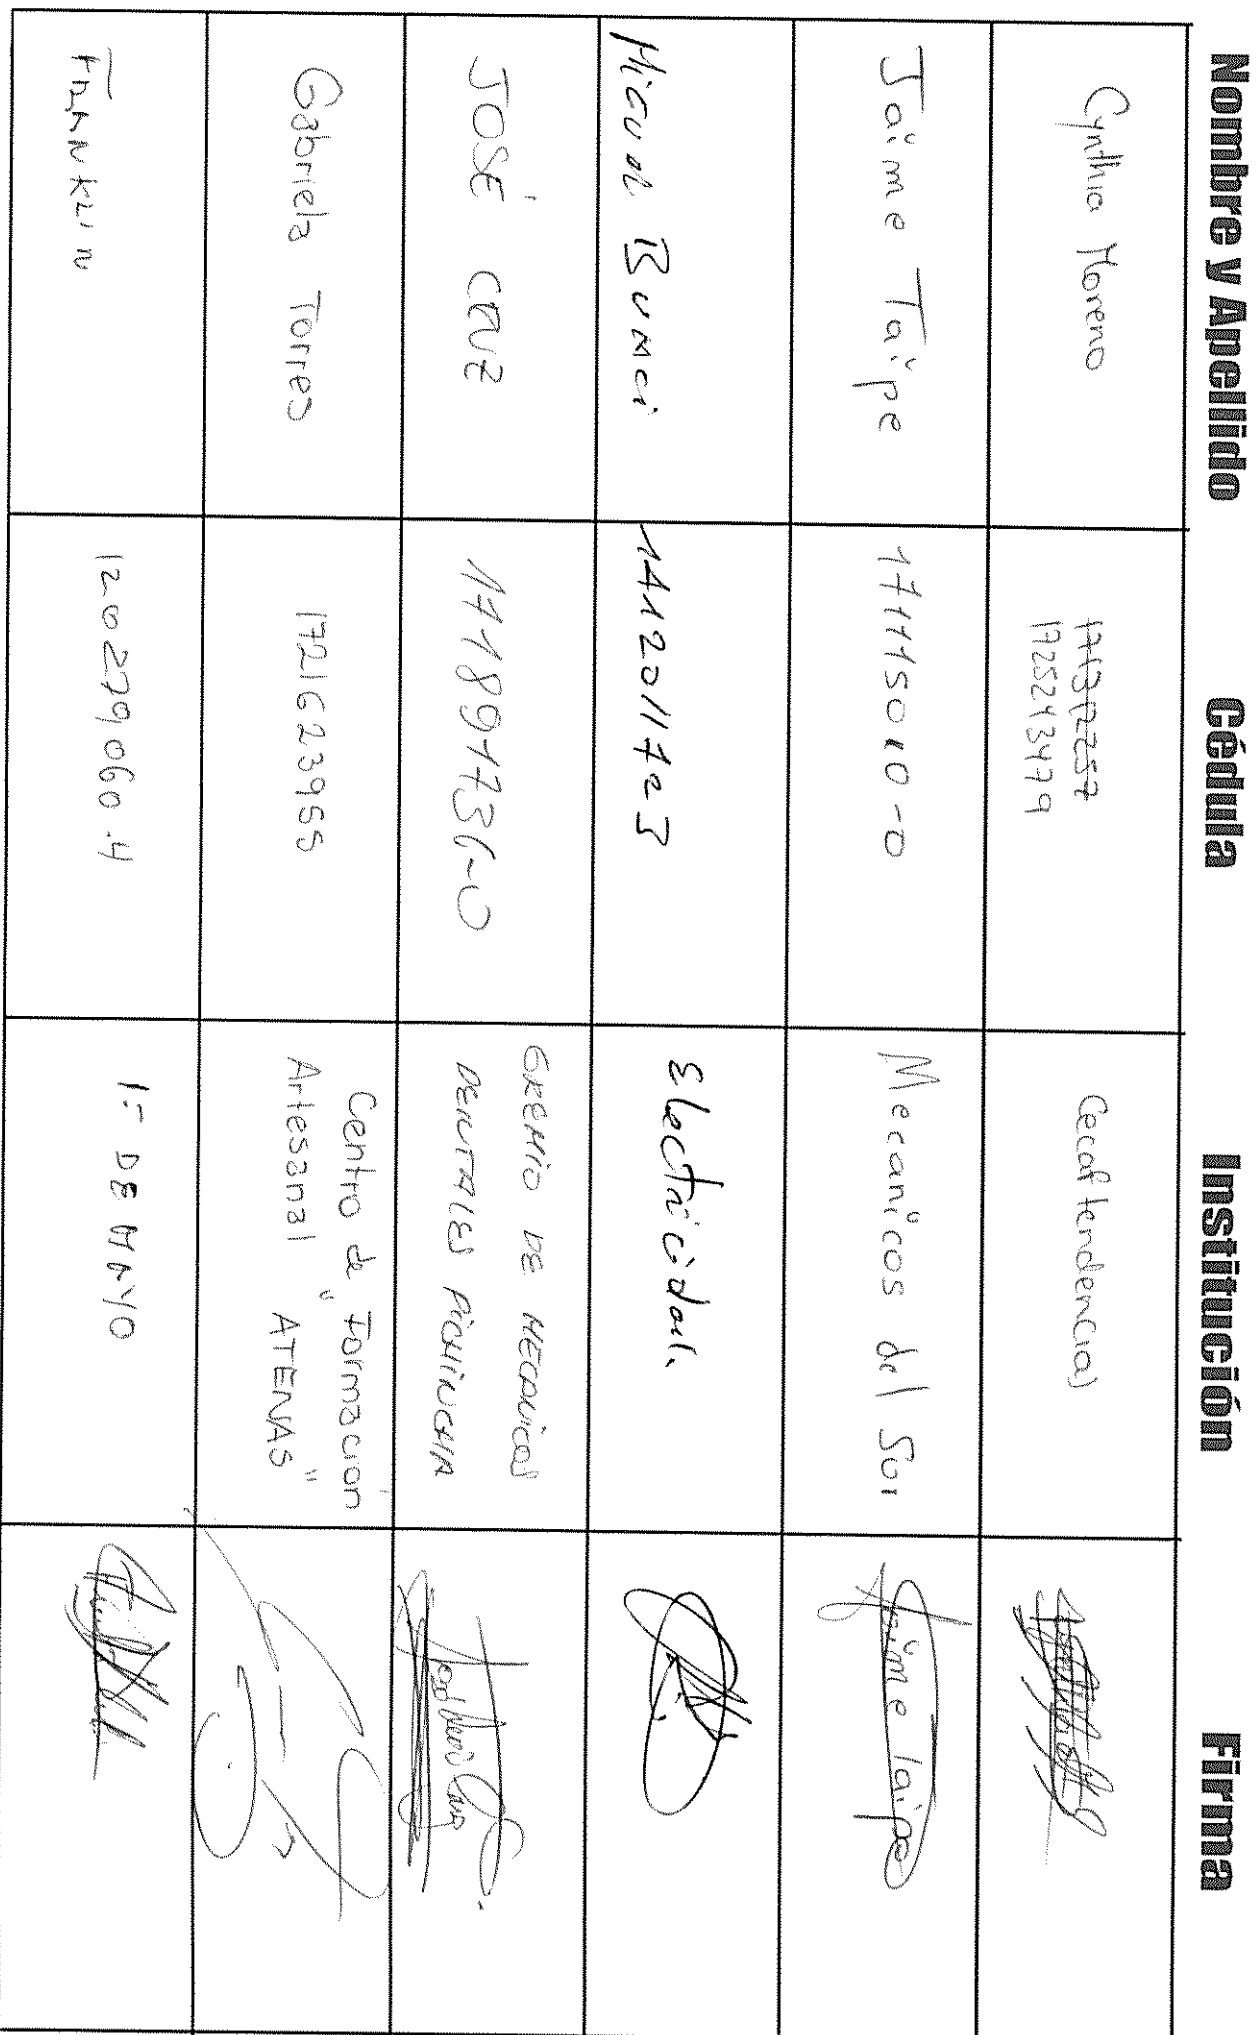 Nombre y Apellido Cédula Institución Firma
Cynthia Moreno 1713172257 Cecaf tendencias
1725243479
Jaime Taipe 171115010-0 Mecanicos del Sur Jaime Taipe
Electricidad.
JOSÉ CRUZ 171891736-0 GREMIO DE MECANICOS
DENTALES PICHINCHA
Gabriela Torres 1721623955 Centro de Formación
Artesanal "ATENAS"
FRANKLIN 120279060.4 1- DE MAYO